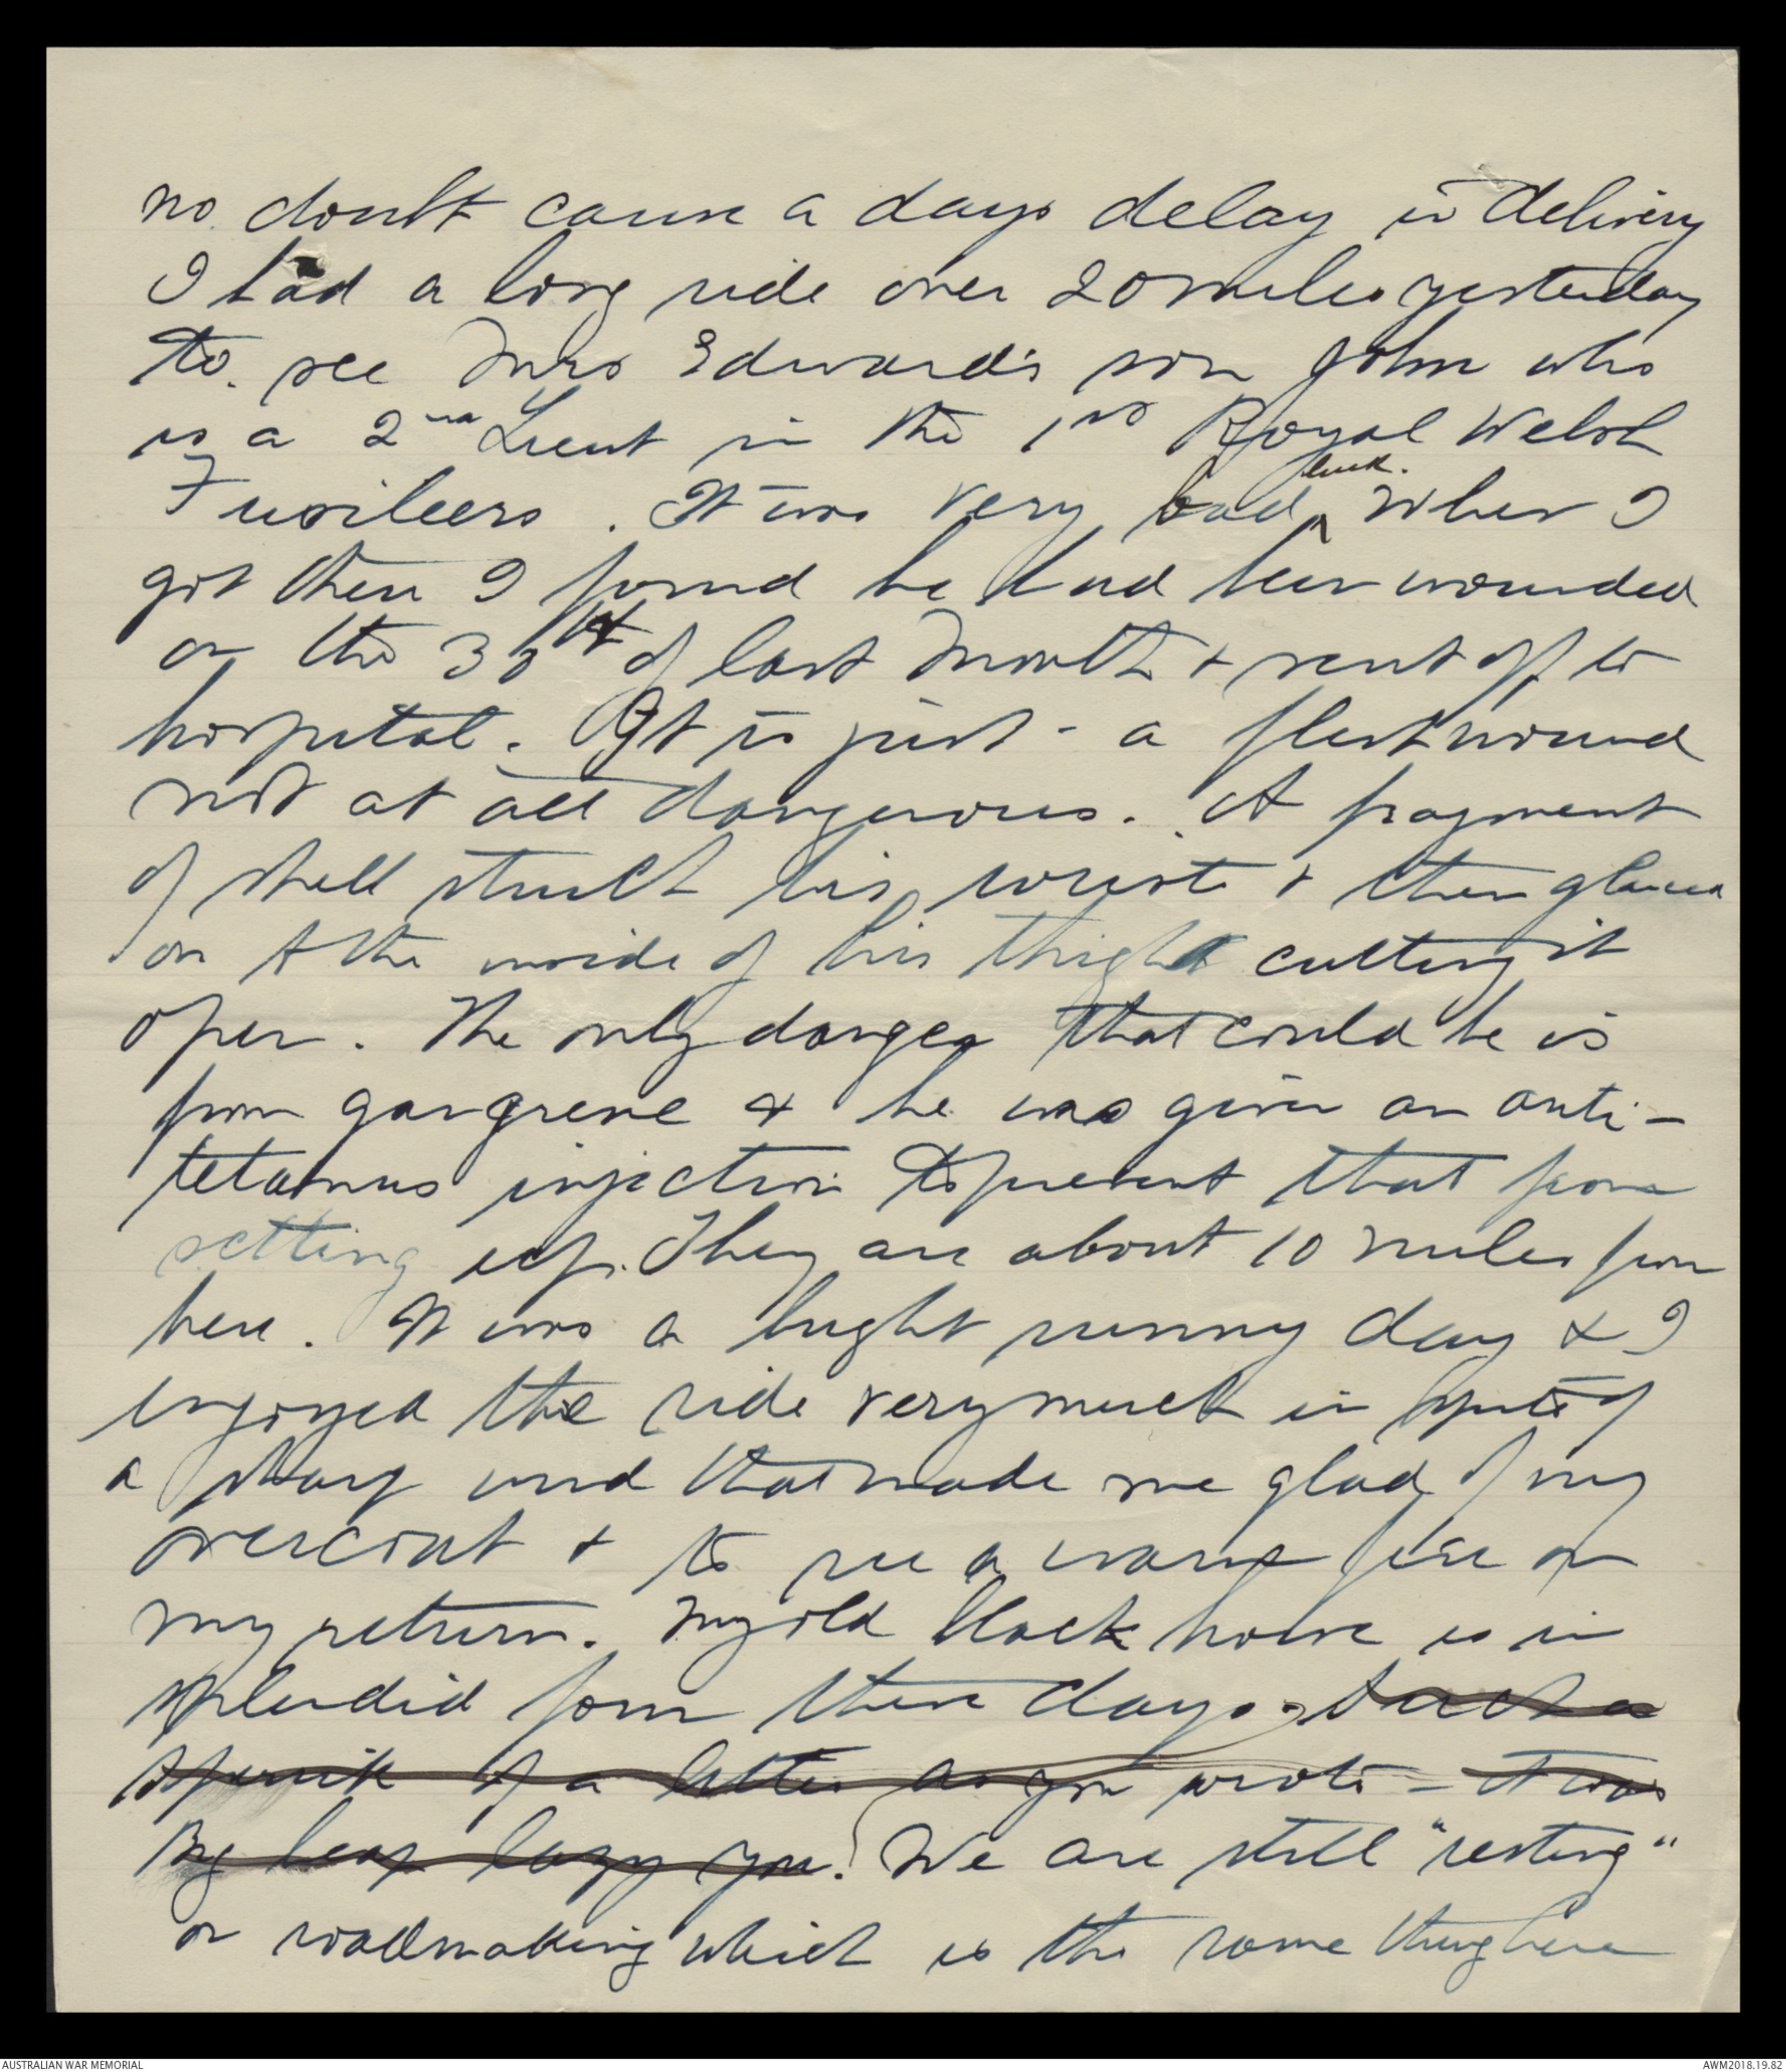 no doubt cause a days delay in delivery
I had a long ride over 20 miles yesterday
to see Mrs Edward's son John who
is a 2nd Lieut in the 1st Royal Welsh
Fusileers. It was very bad luck. When I
got there I found he had been wounded
on the 30th of last month & sent off to
hospital. It is just - a flesh wound
not at all dangerous. A fragment
of shell struck his wrist & then glanced
on to the inside of his thigh cutting it
open. The only danger that could be is
from gangrene & he was given an anti-
tetanus injection to prevent that from
setting up. They are about 10 miles from
here. It was a bright sunny day & I
enjoyed the ride very much in spite of
a sharp wind that made me glad of my
overcoat & to see a warm fire on
my return. My old black horse is in
splendid form these days. Such a
of a letter as you wrote - It was
lazy you! We are still "resting"
or roadmaking which is the same thing here
AUSTRALIAN WAR MEMORIAL
AWM2018.19.82